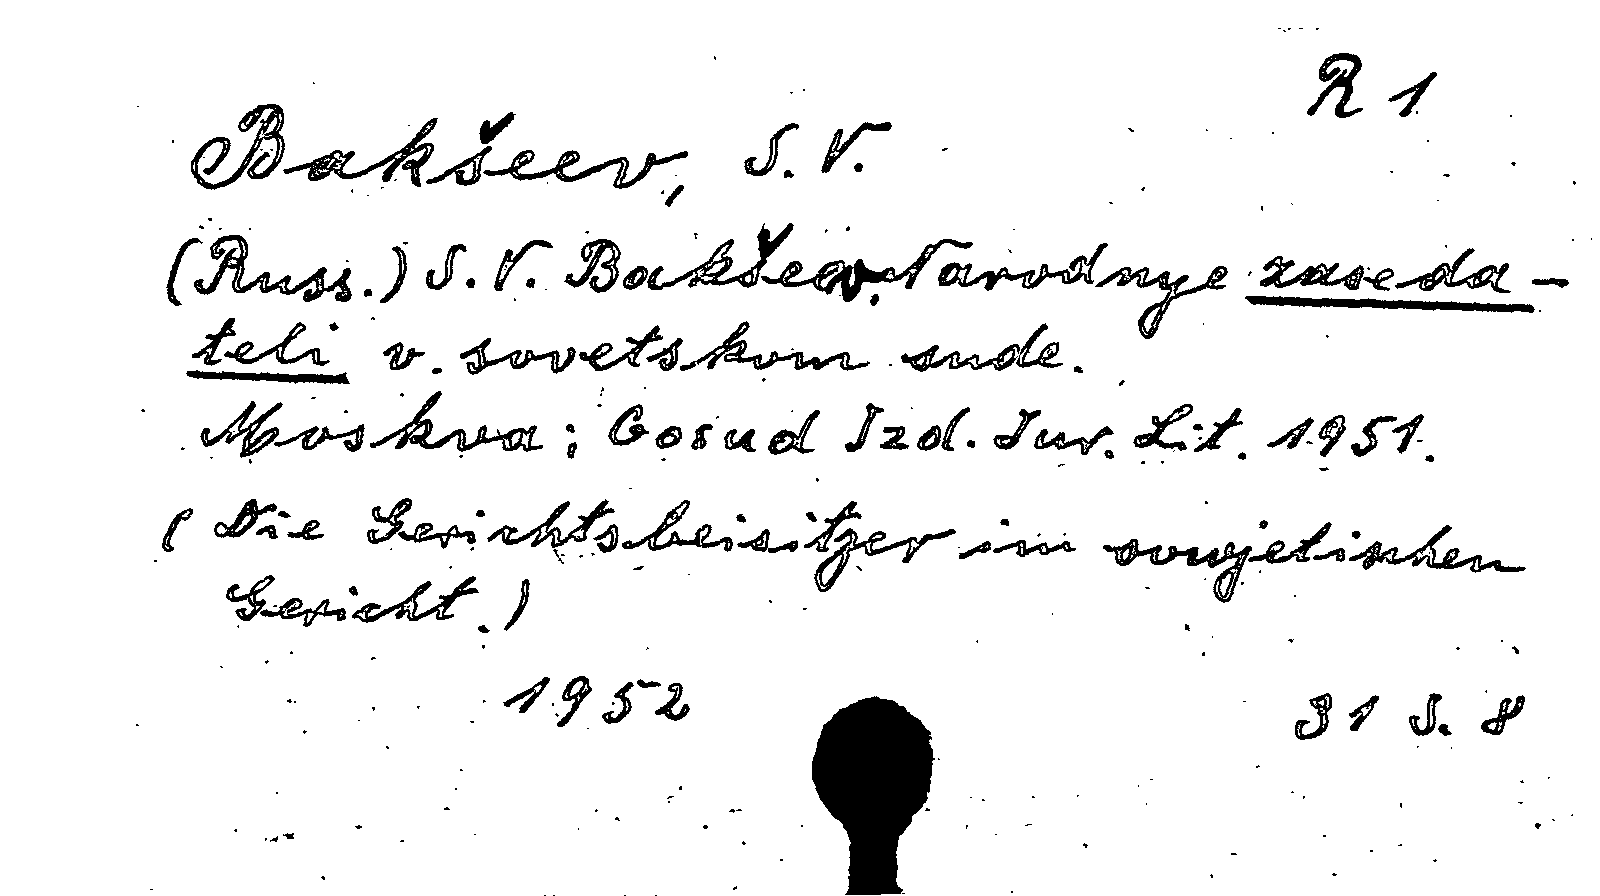 R 1
Bakšeev, S. V.
(Russ.) S. V. Bakšeev. Narodnye zaseda-
teli v. sovetskom sude.
Moskva; Gosud Izd. Jur. Lit. 1951.
(Die Gerichtsbeisitzer im sowjetischen
Gericht.)
1952 31 S. 8